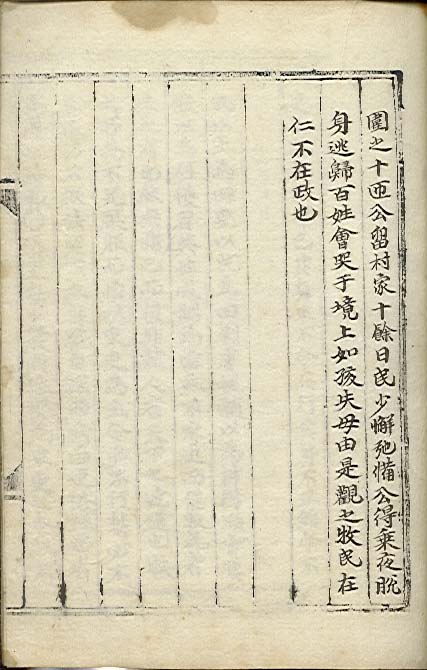 圍之十匝公留村家十餘日民少懈弛備公得乘夜脫
身逃歸百姓會哭于境上如孩失母由是觀之牧民在
仁不在政也